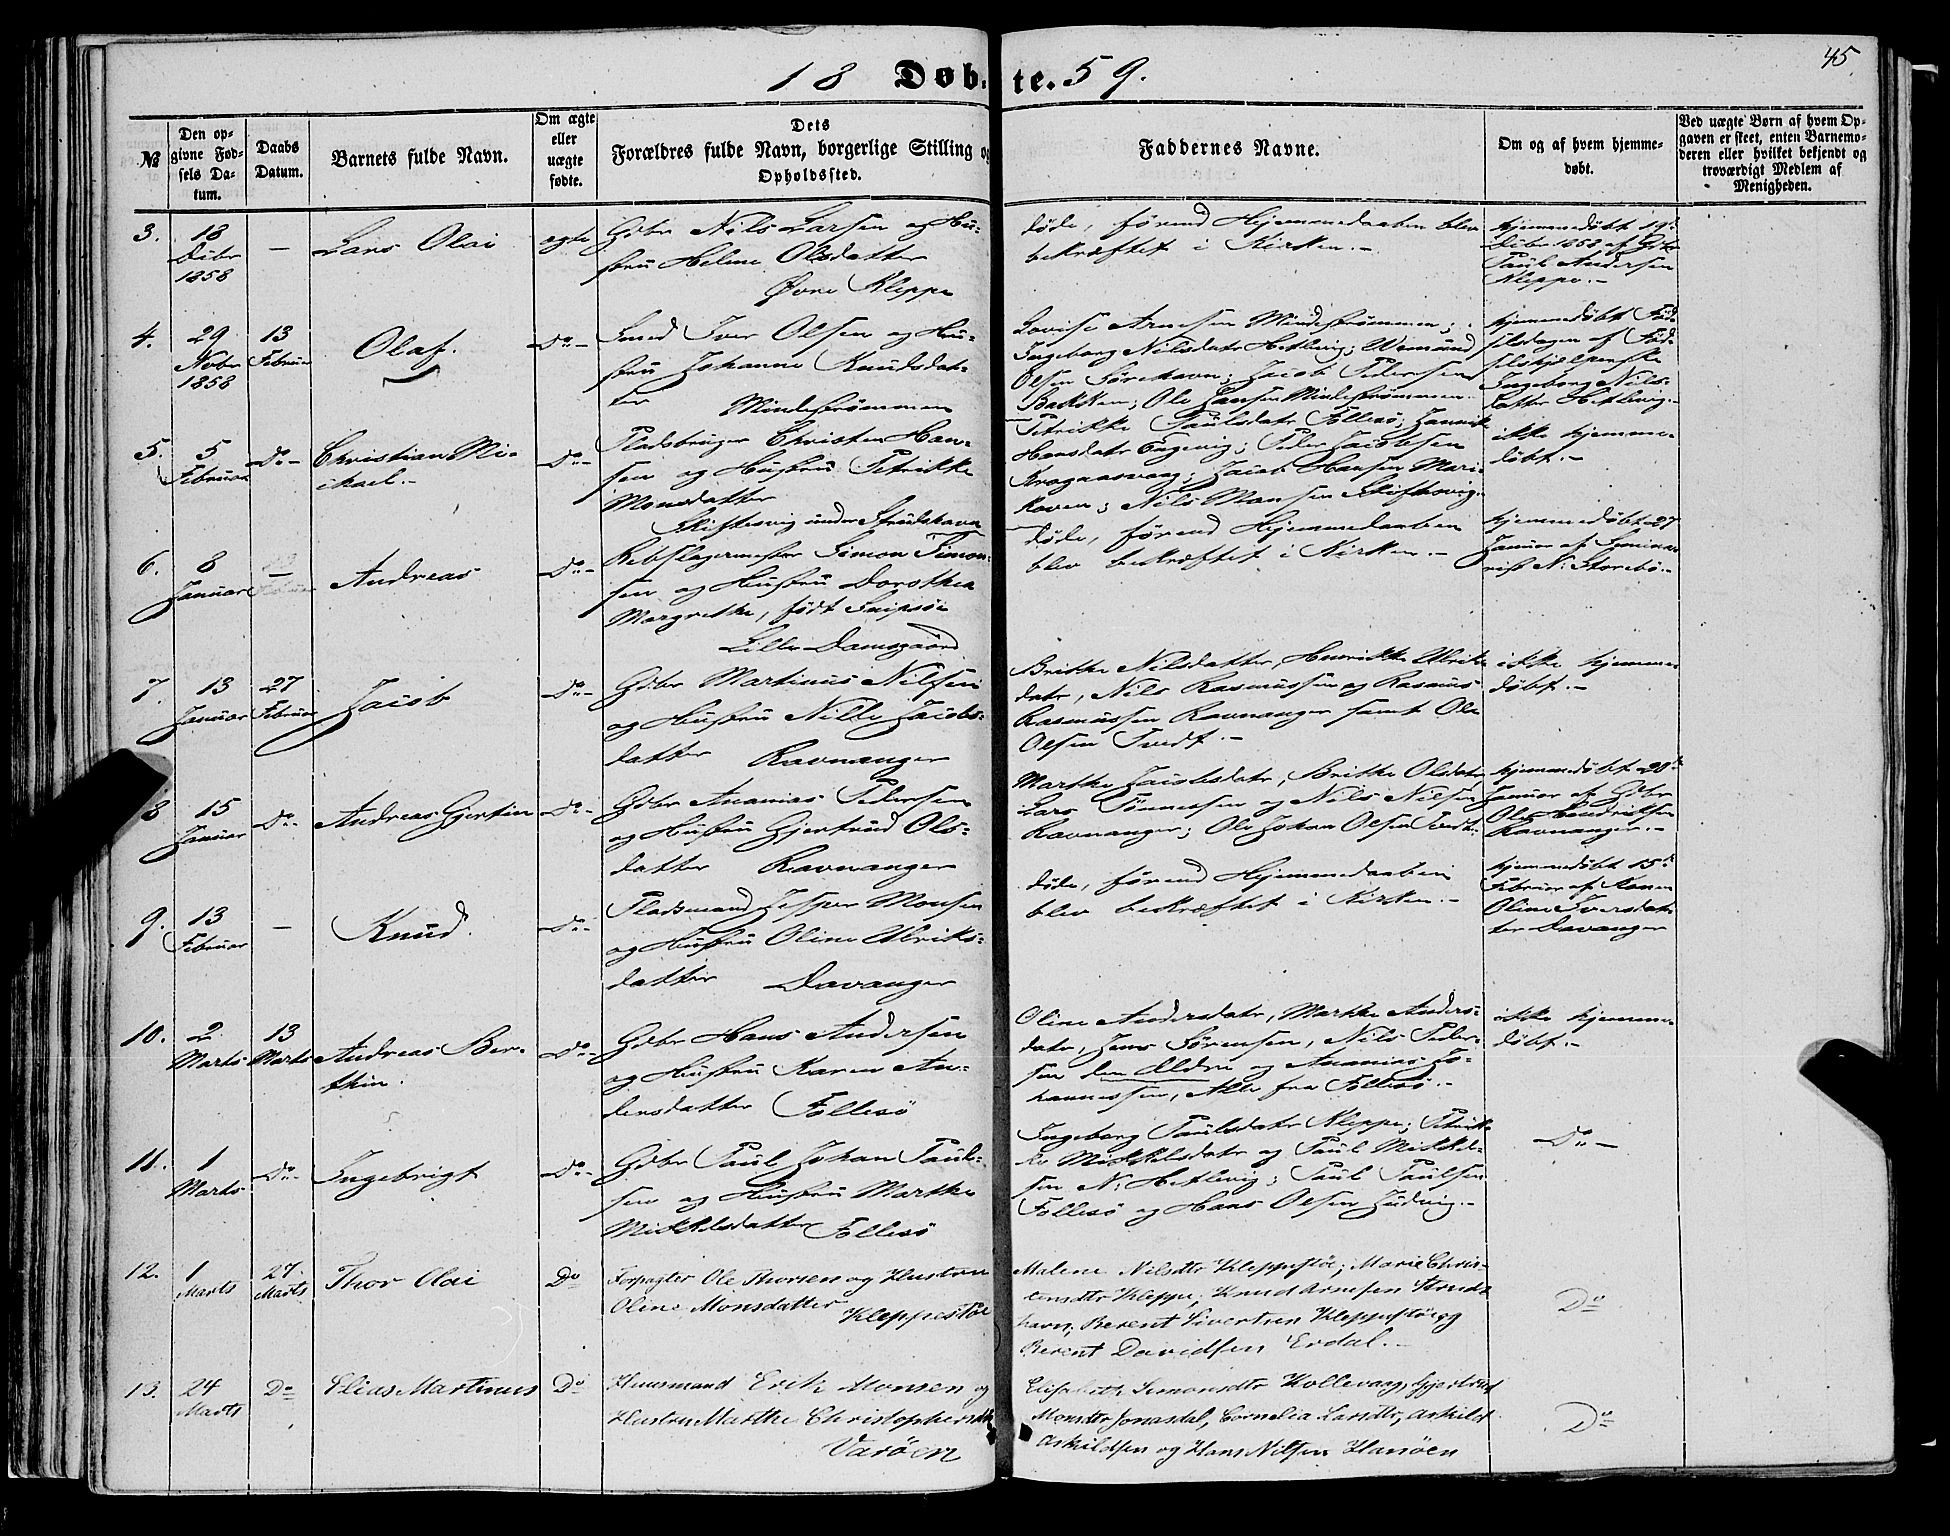 45
18 Døbte. 59.
№
Den opgivne Fødsels Datum.
Daabs Datum.
Barnets fulde Navn.
Om ægte eller uægte fødte.
Dets Forældres fulde Navn, borgerlige Stilling og Opholdssted.
Faddernes Navne.
Om og af hvem hjemmedøbt.
Ved uægte Børn af hvem Opgaven er skeet, enten Barnemoderen eller hvilket bekjendt og troværdigt Medlem af Menigheden.
3.
18
Debr
1858
—
Lars Olai
ægte
Gdbr Nils Larsen og Hu-
stru Helene Olsdatter
Øvre Kleppe
døde, førend Hjemmedaaben blev
bekræftet i Kirken.-
hjemmedøbt 19de
Debr 1858 af Gdbr
Paul Andersen
Kleppe.-
4.
29
Novbr
1858
13
Februar
Olaf.
Do-
Smed Iver Olsen og Hu-
stru Johanne Knudsdat-
ter Mindestrømmen
Lovise Arnesen Mindestrømmen;
Ingeborg Nilsdatr Hetlevig; Wemund
Olsen Sørehavn; Jacob Pedersen
Bakken; Ole Hansen Mindestrømmen.
hjemmedøbt Fød-
selsdagen af Fød-
selshjelperske
Ingeborg Nils-
datter Hetlevig.-
5.
5
Februar
Do-
Christian Mi-
chael.-
Do-
Pladsbruger Christen Han-
sen og Hustru Petrikke
Monsdatter
Skiftesvig under Strudshavn
Petrikke Paulsdatr Follesø;
Hansdatr Engevig; Peder Jacobsen
Kragaasvaag; Jacob Hansen Mari-
koven; Nils Monsen Skiftesvig.
ikke hjemme-
døbt.-
6.
8
Januar
—
Andreas
Do-
Rebslagermester Simon Simon-
sen og Hustru Dorothea
Margrethe, født Snipsøe
Lille Damsgaard
døde, førend Hjemmedaaben
blev bekræftet i Kirken.-
hjemmedøbt 27
Januar af Semina-
rist N: Storebø.-
7.
13
Januar
27
Februar
Jacob
Do-
Gdbr Martinus Nilsen
og Hustru Nille Jacobs-
datter Ravnanger
Brithe Nilsdatter, Henrikke Ulriks
datr, Nils Rasmussen og Rasmus
Rasmussen Ravnanger samt Ole
Olsen Tvedt.-
ikke hjemme-
døbt.-
8
15
Januar
Do-
Andreas Gjertin
Do-
Gdbr Ananias Pedersen
og Hustru Gjertrud Ols-
datter Ravnanger
Marthe Jacobsdatr, Brithe Olsdatr
Lars Tønnessen og Nils Nilsen
Ravnanger; Ole Johan Olsen Tvedt.
hjemmedøbt 20de
Januar af Gdbr
Ole Hendriksen
Ravnanger.-
9.
13
Februar
—
Knud.
Do-
Pladsmand Jesper Monsen
og Hustru Oline Ulriks-
datter Davanger
døde, førend Hjemmedaaben
blev bekræftet i Kirken.-
hjemmedøbt 15de
Februar af Konen
Oline Iversdat-
ter Davanger
10.
2
Marts
13
Marts
Andreas Ber-
thin.
Do-
Gdbr Hans Andersen
og Hustru Karen An-
dersdatter Follesø
Oline Andersdatr, Marthe Anders-
datr, Jens Sørensen, Nils Peder-
sen den Ældre og Ananias Jo-
hannessen, Alle fra Follesø.-
ikke hjemme-
døbt.-
11.
1
Marts
Do-
Ingebrigt
Do-
Gdbr Paul Johan Pauls-
sen og Hustru Marthe
Mikkelsdatter Follesø
Ingeborg Paulsdatr Kleppe; Petrik-
ke Mikkelsdatr og Paul Mikkel-
sen N: Hetlevig; Paul Paulsen
Follesø og Hans Olsen Judvig.-
Do-
12.
1
Marts
27
Marts
Thor Olai
Do
Forpagter Ole Thorsen og Hustru
Oline Monsdatter
Kleppestøe
Malene Nilsdtr Kleppestøe; Marie Chris-
tensdtr Kleppe; Knud Arnesen Struds
havn, Berent Sivertsen Kleppestøe og
Berent Davidsen Erdal.-
Do
13.
24
Marts
Do
Elias Martinus
Do
Huusmand Erik Monsen og
Hustru Marthe Christophersdtr
Varøen
Elisabeth Simonsdtr Kollevaag, Gjertrud
Monsdtr Jonasdal, Cornelia Larsdtr, Askild
Askildsen og Hans Nilsen Hanøen
Do